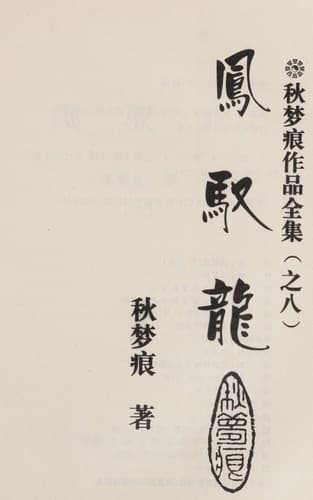 秋梦痕作品全集（之八）
鳳馭龍
秋梦痕
秋梦痕 著